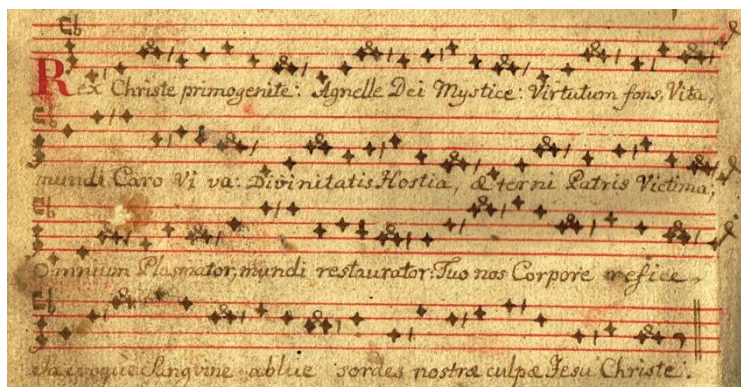 Rex Christe primogenite: Agnelle Dei Mystice: Virtutum fons, Vita,
mundi Caro Vi va: Divinitatis Hostia, æterni Patris Victima;
Omnium Plasmator, mundi restaurator: Tuo nos Corpore refice,
Sacroque Sangvine ablue sordes nostræ culpæ Jesu Christe.